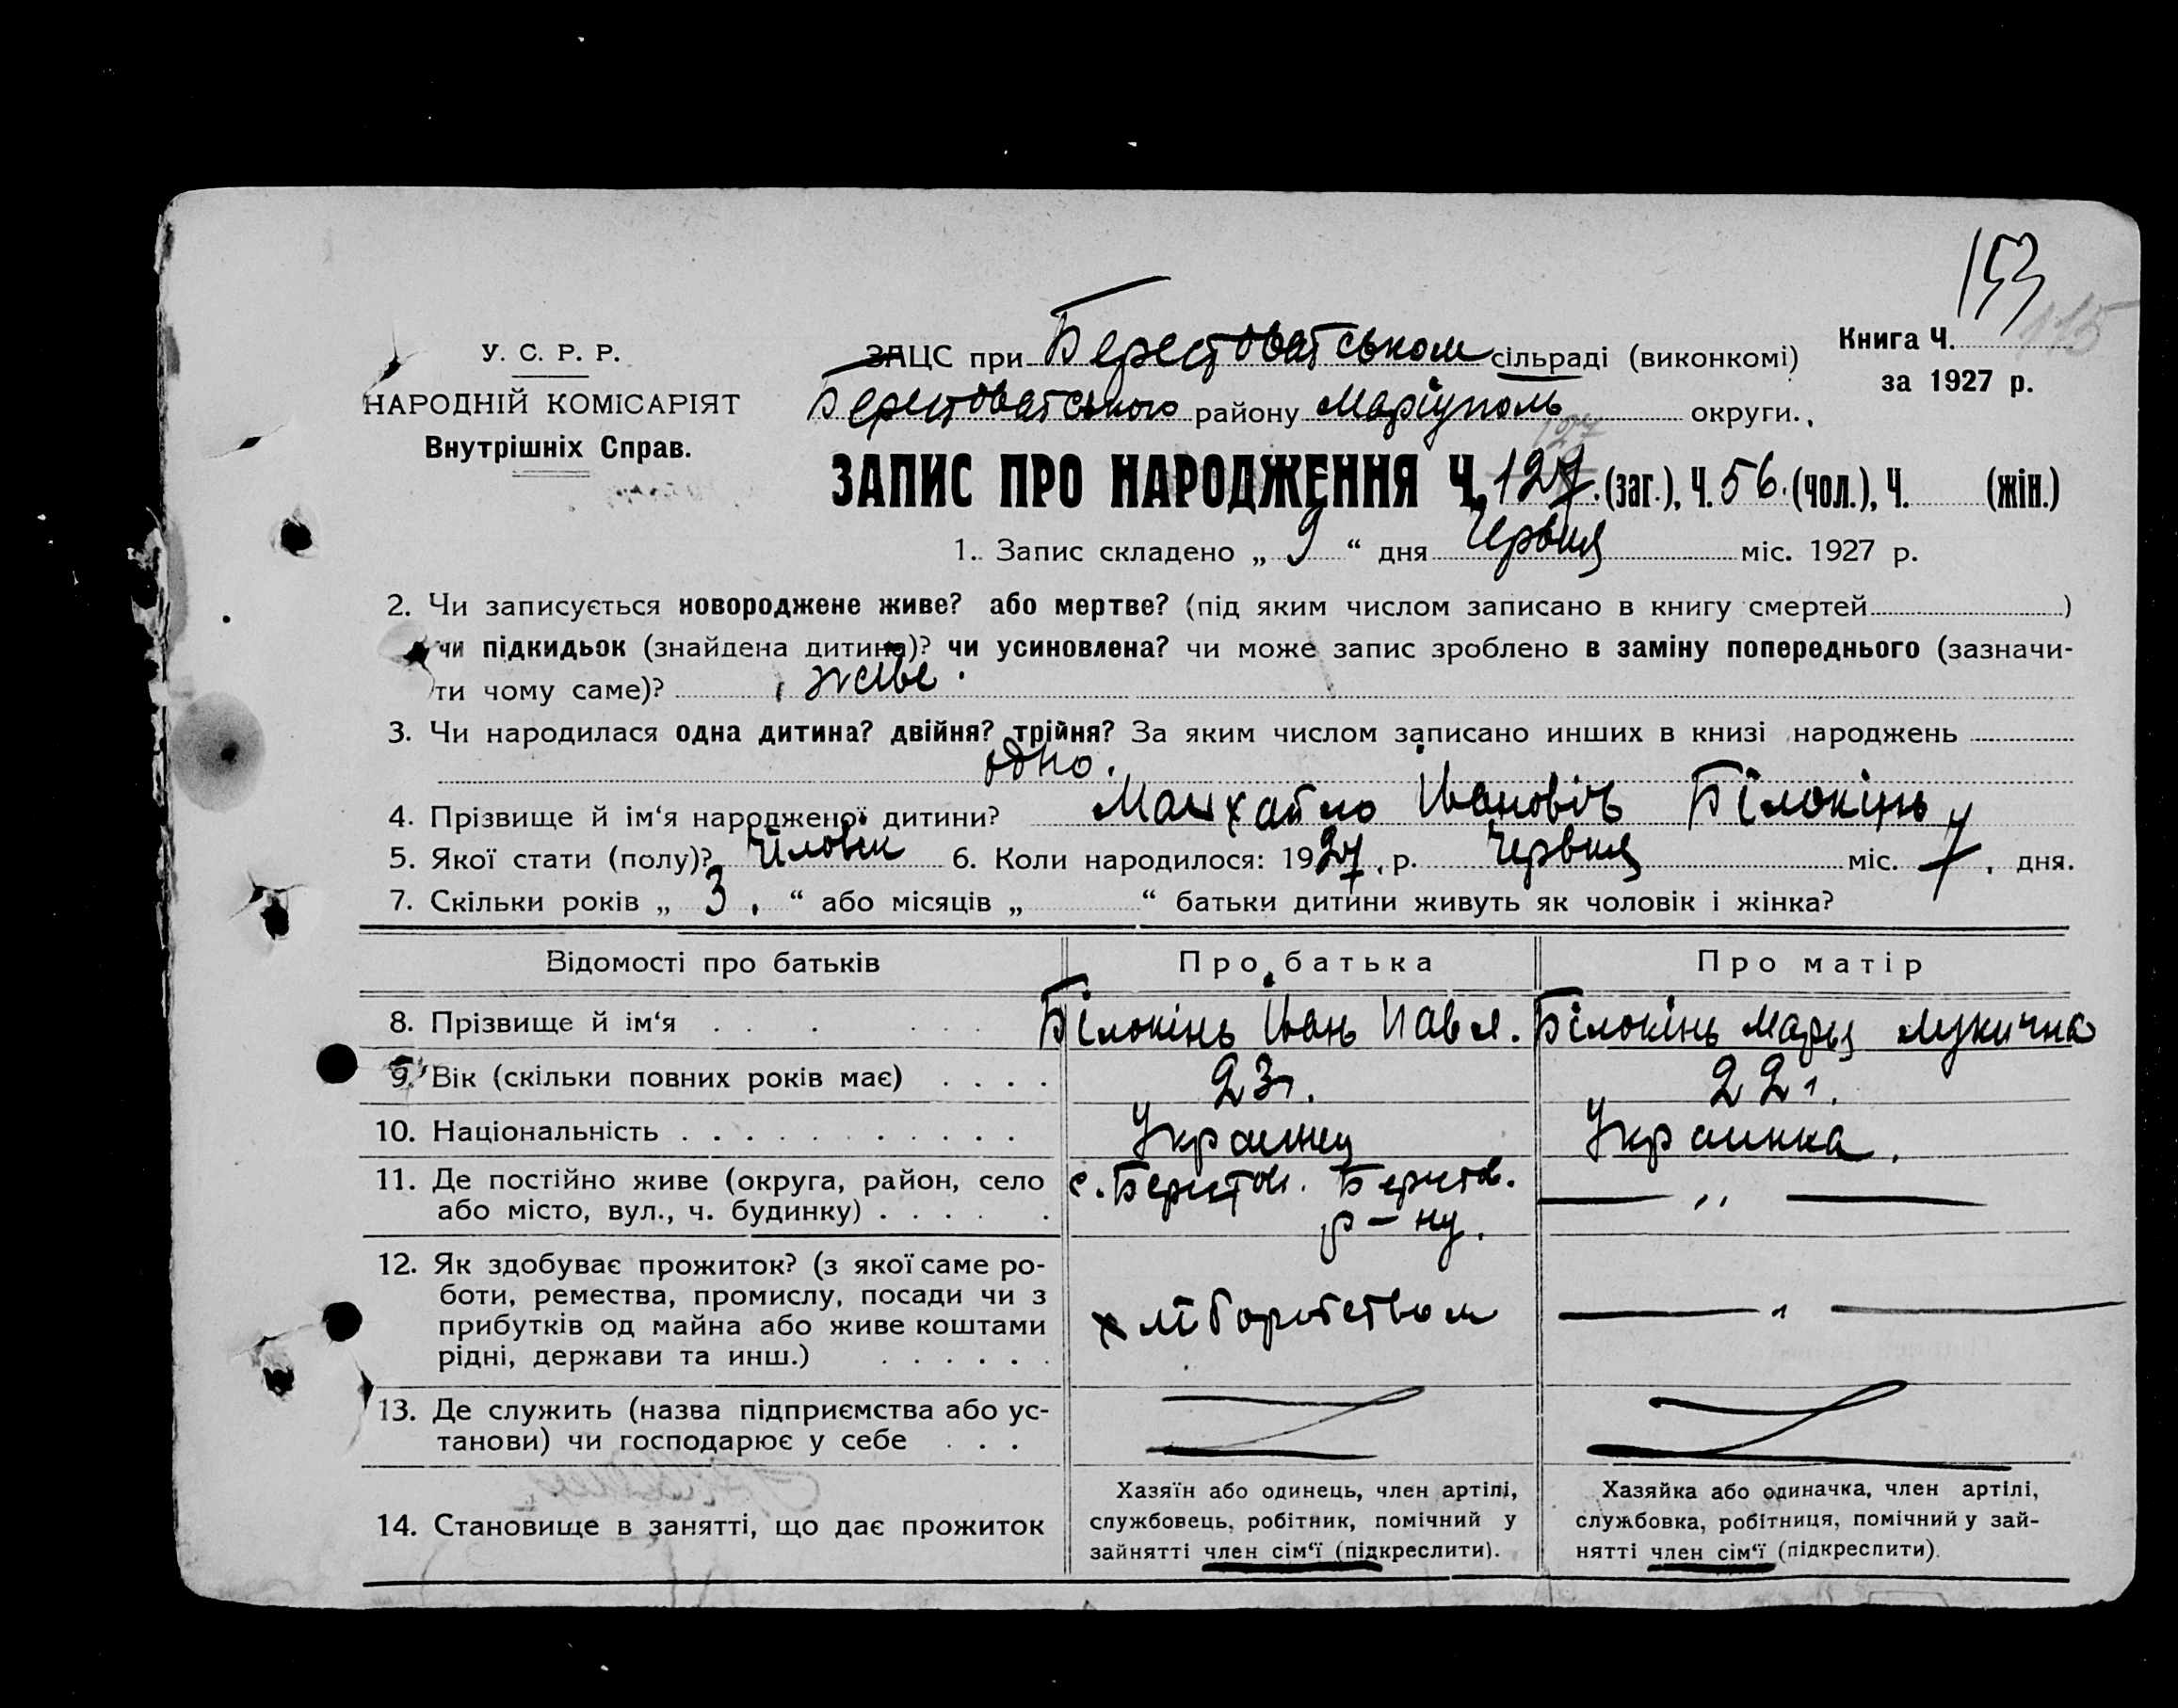 153
115
У. С. Р. Р.
НАРОДНІЙ КОМІСАРІЯТ
Внутрішніх Справ.
ЗАЦС при Берестоватськом сільраді (виконкомі)
Берестоватського району Маріуполь округи.
Книга Ч.
за 1927 р.
127
ЗАПИС ПРО НАРОДЖЕННЯ Ч. 127. (заг.), Ч. 56. (чол.), Ч. (жін.)
1. Запис складено „ 9 “ дня Червня міс. 1927 р.
2. Чи записується новороджене живе? або мертве? (під яким числом записано в книгу смертей )
чи підкидьок (знайдена дитина)? чи усиновлена? чи може запис зроблено в заміну попереднього (зазначи-
ти чому саме)? живе.
3. Чи народилася одна дитина? двійня? трійня? За яким числом записано инших в книзі народжень
одно.
4. Прізвище й ім‘я народженої дитини? Іванович Білокінь
5. Якої стати (полу)? 6. Коли народилося: 1927 р. Червня міс. 7. дня.
7. Скільки років „ 3. “ або місяців „ “ батьки дитини живуть як чоловік і жінка?
Відомості про батьків Про батька Про матір
8. Прізвище й ім‘я . . . . . . Білокінь Івань Павл. Білокінь Марія Лукична
9. Вік (скільки повних років має) . . . . 23г. 22г.
10. Національність . . . . . . . . . . . Украинец Украинка.
11. Де постійно живе (округа, район, село
або місто, вул., ч. будинку) . . . . .
с. Берестов. Берестов.
р-ну.
— „ —
12. Як здобуває прожиток? (з якої саме ро-
боти, ремества, промислу, посади чи з
прибутків од майна або живе коштами
рідні, держави та инш.) . . . . . .
хліборобством
— „ —
13. Де служить (назва підприємства або ус-
танови) чи господарює у себе . . .
14. Становище в занятті, що дає прожиток
Хазяїн або одинець, член артілі,
службовець, робітник, помічний у
зайнятті член сім‘ї (підкреслити).
Хазяйка або одиначка, член артілі,
службовка, робітниця, помічний у зай-
нятті член сім‘ї (підкреслити).